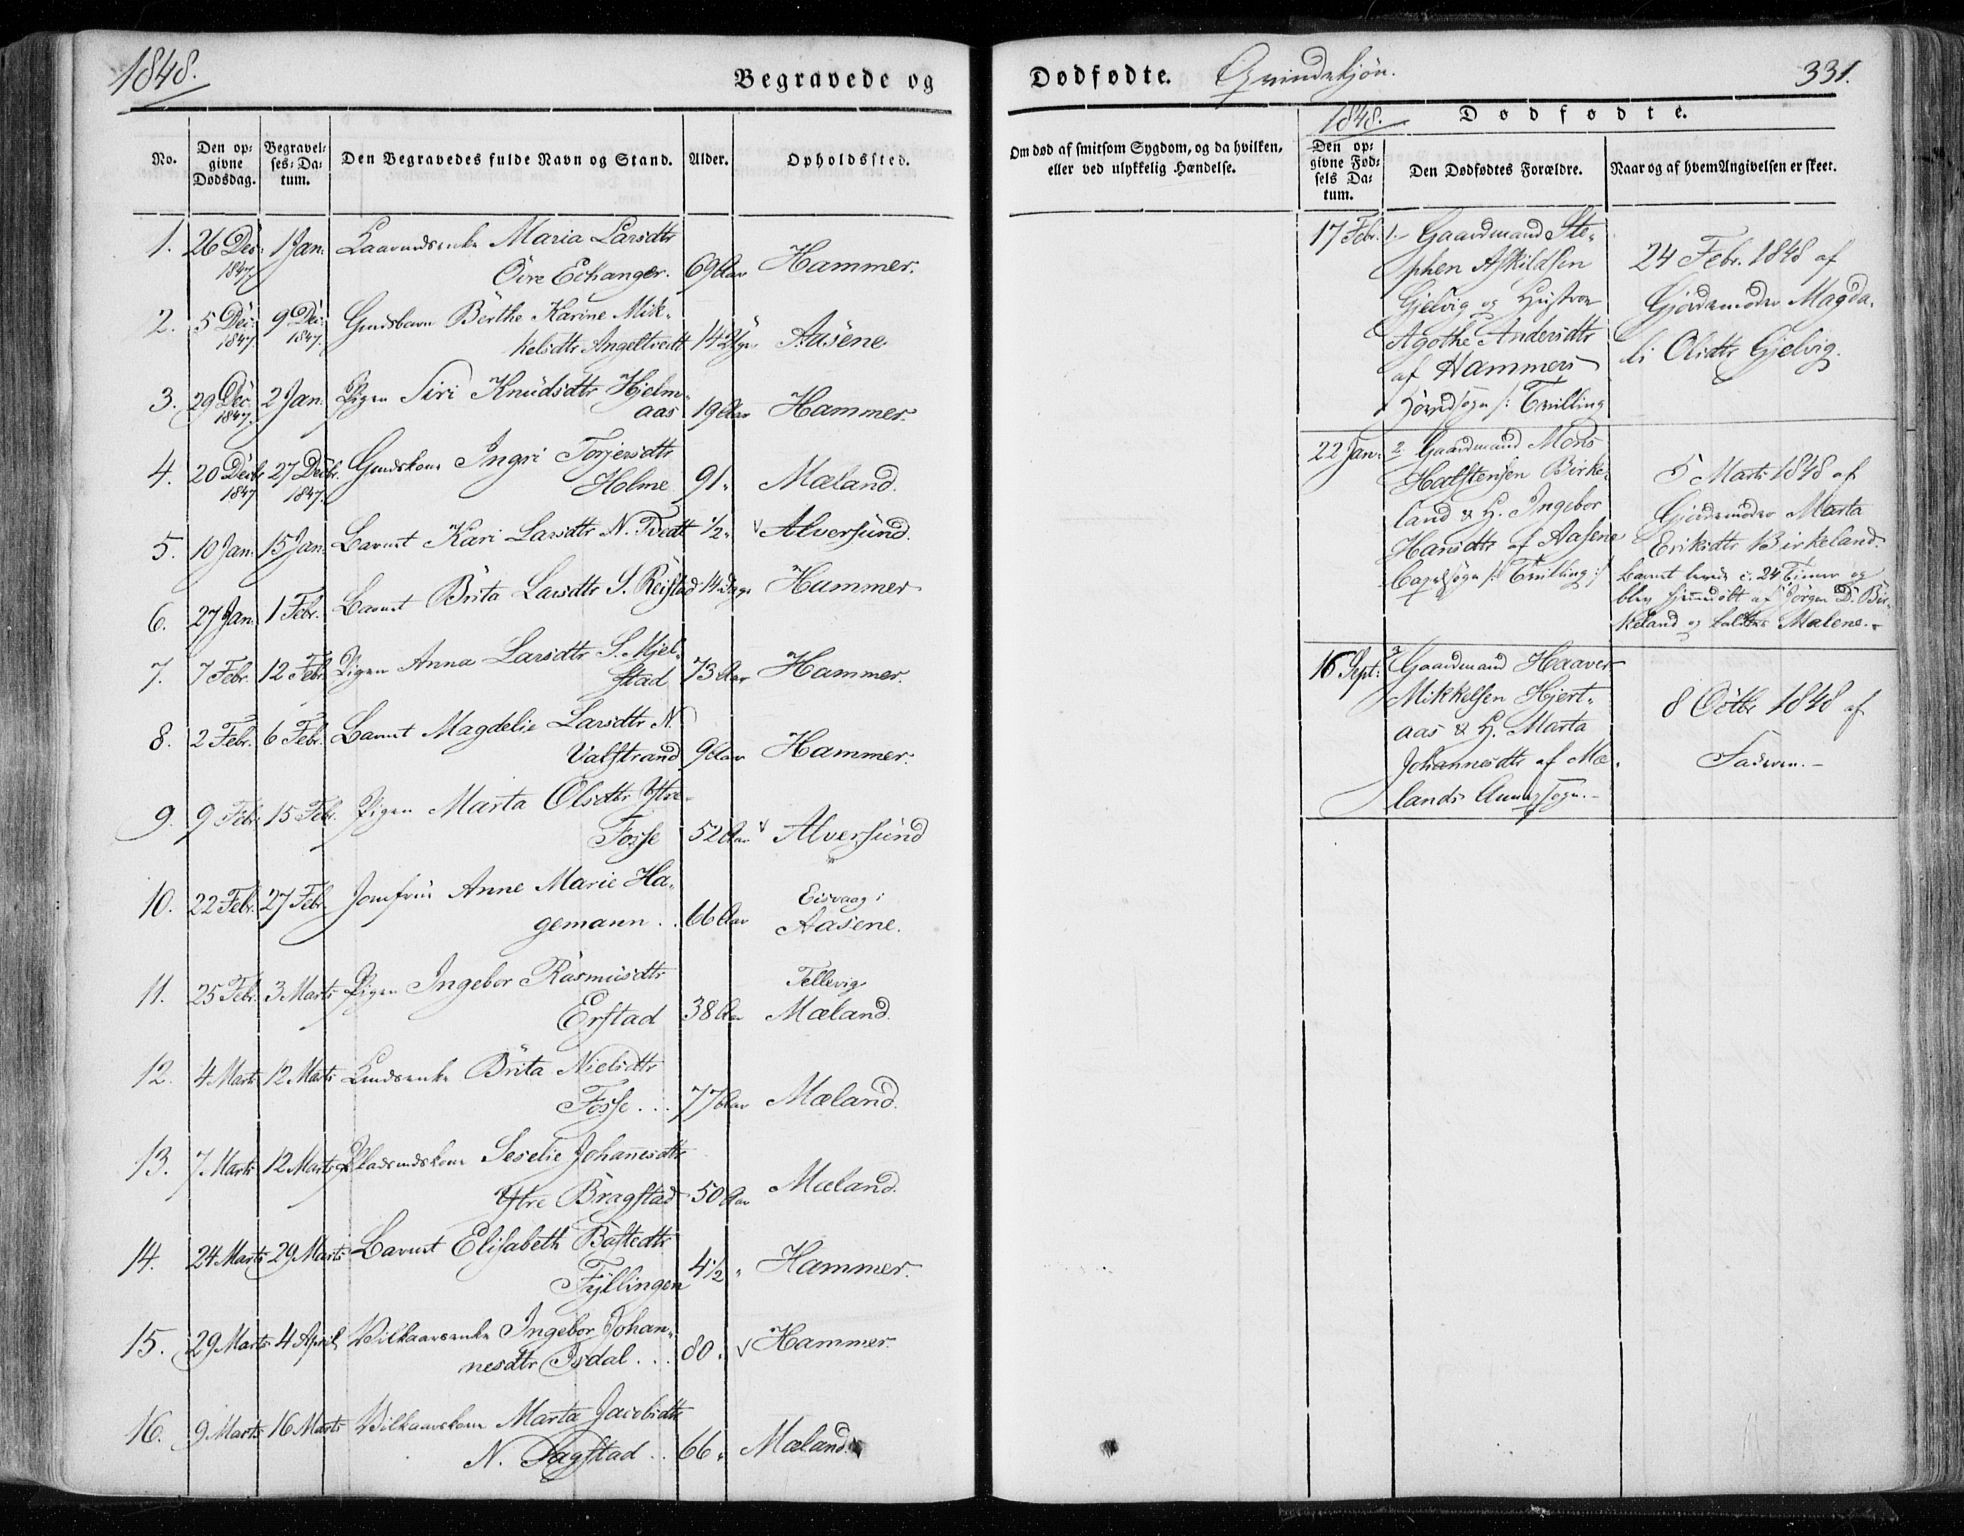 1848.
Begravede og
Dødfødte. Qvindekjøn.
331.
No.
Den op-
givne
Dødsdag.
Begravel-
ses-Da-
tum.
Den Begravedes fulde Navn og Stand.
Alder.
Opholdssted.
1. 26 Dec. 1847. 1 Jan. Maria Larsdtr
Øvre Echanger. 69 Aar Hammer.
2. 5 Dec. 1847. 9 Dec. 1847. Gmdsbarn Berthe Karine Mik-
kelsdtr Angeltvedt 14 Aasene
3. 29 Dec. 1847. 2 Jan. Pigen Siri Knudsdtr Hjelm-
aas 19 Aar Hammer.
4. 20 Decbr 1847. 27 Decbr. 1847. Gmdskone Ingri Torjersdtr
Holme 91 " Mæland.
5. 10 Jan. 15 Jan. Barnet Kari Larsdtr N. Tvedt 1/2 " Alversund.
6. 27 Jan. 1 Febr. Barnet Brita Larsdtr S. Reistad 14 Dage Hammer
7. 7 Febr. 12 Febr. Pigen Anna Larsdtr S. Mjel-
stad 73 Aar Hammer.
8. 2 Febr. 6 Febr. Barnet Magdelie Larsdtr N.
Valstrand 9 Aar Hammer.
9. 9 Febr. 15 Febr. Pigen Marta Olsdtr Ytre
Fosse 52 Aar Alversund
10. 22 Febr. 27 Febr. Jomfru Anne Marie Ha-
gemann .. 66 Aar Eisvaag i
Aasene.
11. 25 Febr. 3 Marts Pigen Ingebor Rasmusdtr
Erstad 38 Aar Tellevig
Mæland.
12. 4 Marts 12 Marts Brita Nielsdtr
Fosse ... 77 Aar Mæland.
13. 7 Marts 12 Marts Pladsmdskone Seselie Johanesdtr
Ytre Bragstad 50 Aar Mæland.
14. 24 Marts 29 Marts Barnet Elisabeth Bastedtr
Fyllingen 4 1/2 " Hammer.
15. 29 Marts 4 April Vilkaarsenke Ingebor Johan-
nesdtr Isdal ... 80 " Hammer.
16. 9 Marts 16 Marts Vilkaarskone Marta Jacobsdtr
N. Sagstad .. 66 " Mæland
Om død af smitsom Sygdom, og da hvilken,
eller ved ulykkelig Hændelse.
1848. Dødfødte.
Den op-
givne Fød-
sels Da-
tum.
Den Dødfødtes Forældre.
Naar og af hvem Angivelsen er skeet.
17 Febr. 1. Gaardmand Ste-
phen Askildsen
Gjelvig og Hustroe
Agothe Andersdtr
af Hammers
Hovedsogn /: Tvilling
24 Febr. 1848 af
Gjordemoder Magda-
li Olsdtr Gjelvig.
22 Jan. 2 Gaardmand Mons
Halstensen Birke-
land & H. Ingebor
Hansdtr af Aasene
Capelsogn /: Tvilling :/
5 Marts 1848 af
Gjordemoder Marta
Eriksdtr Birkeland.
Barnet levede c. 24 Timer og
blev hjemdøbt af Jørgen D. Bir-
keland og kaldtes Malene.-
16 Sept. 3 Gaardmand Haaver
Mikkelsen Hjert-
aas & H. Marta
Johannesdtr af Mæ-
lands Annexsogn.-
8 Octbr 1848 af
Faderen.-